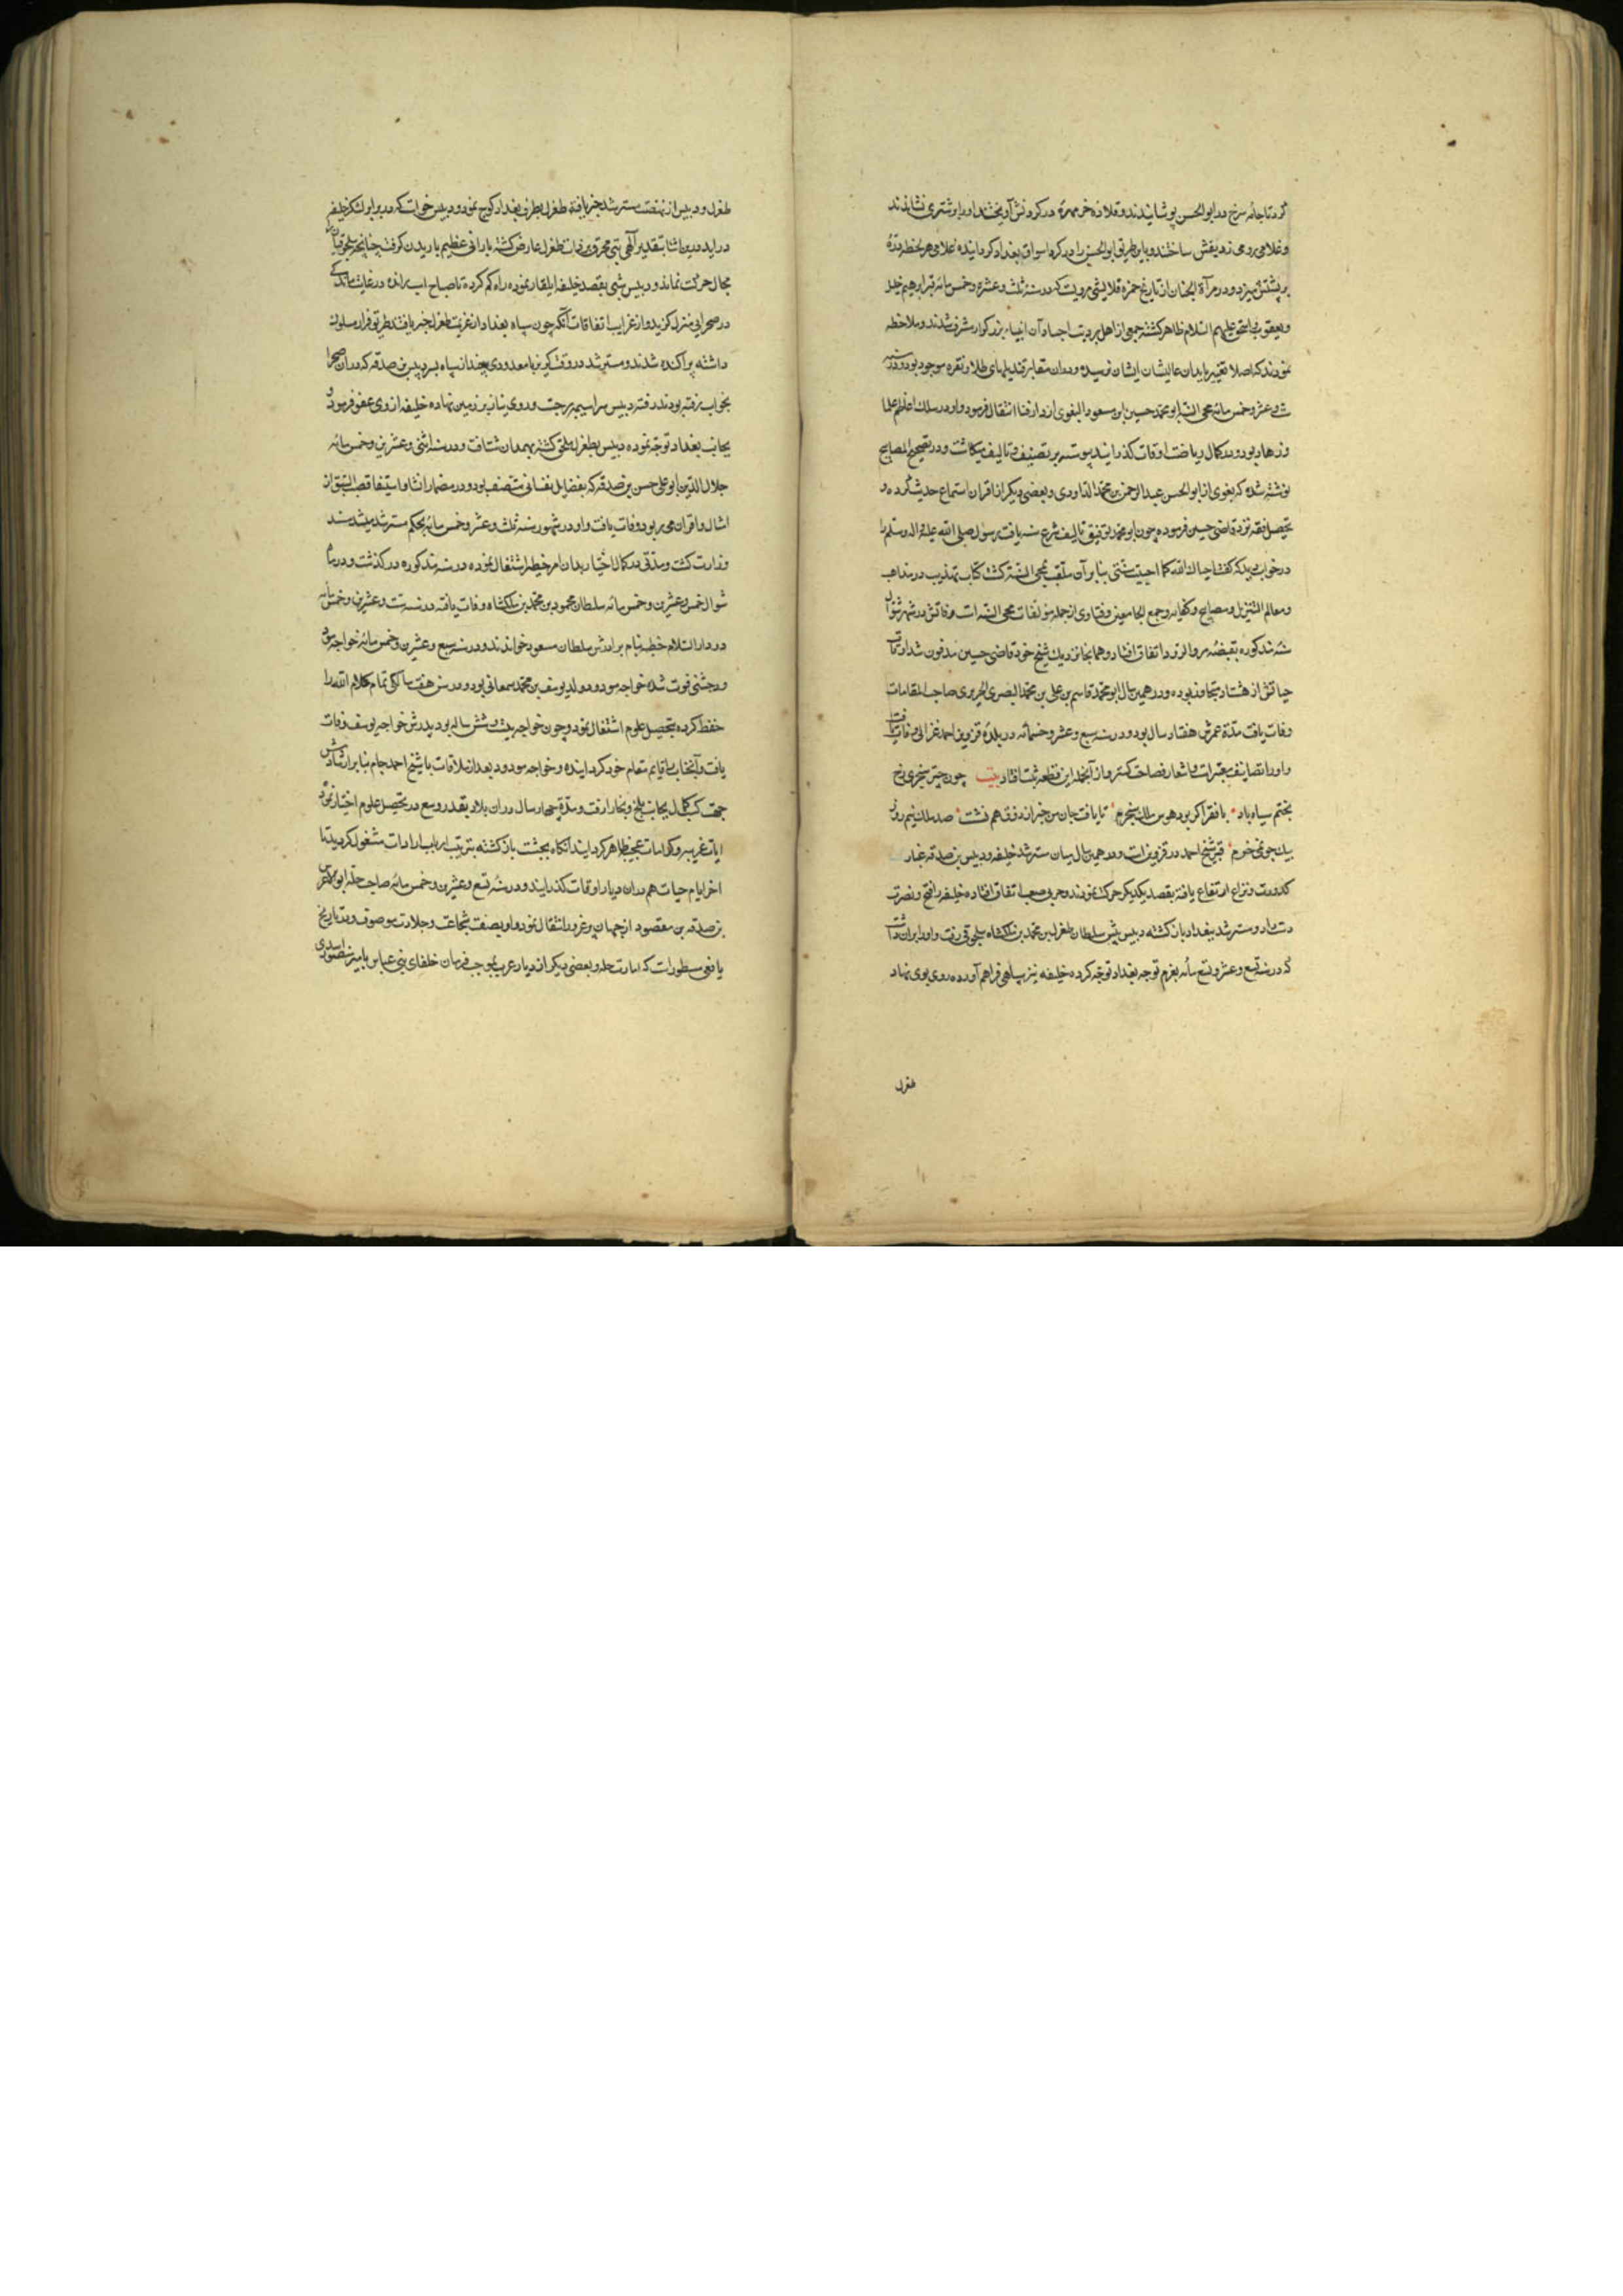 کردتا جامه سرخ در ابوالحسن پوشانیدند و قلاده خرمهره در کردنش آویختند او را بر شتری نشاندند
و غلامی رومی ردیفش ساختند و باین طریق ابوالحسن را در کرد اسواق بغداد کردانیده غلامی هر لحظه دره
بر پشتش میزد و در مرآة الجنان از تاریخ حمزه قلانیشی مرویست که در سنه ثلث و عشره و خمس مائه قبر ابرهیم خلیل
و یعقوب و اسحق علیهم السلام ظاهر کشته جمعی از اهل برویت اجساد آن انبیاء بزرکوار مشرف شدند و ملاحظه
نمودند که اصلا تغییر بابدان عالیشان ایشان نرسیده و در ان مقابر قندیلهای طلا و نقره موجود بود و در سنه
ست و عشر و خمس مائه محی السنه ابو محمد حسین ابن مسعود البغوی از دار فنا انتقال فرمود و او در سلک اعاظم علما
و زهاد بود و در کمال ریاضت اوقات کذرانید پیوسته بر تصنیف و تالیف میکاشت و در تصحیح المصابیح
نوشته شده که بغوی از ابوالحسن عبدالرحمن بن محمد الداودی و بعضی دیکر از اقران استماع حدیث کرده و
تحصیل فقه نزد قاضی حسین فرموده چون ابو محمد بتوفیق تالیف شرح سنه یافت رسول صلی الله علیه و اله و سلم را
در خواب دید که کفت احیاک الله کما احییت سنتی بنابر آن ملقب بمحی السنه کشت کتاب تهذیب در مذاهب
و معالم التنزیل و مصابیح و کفایه و جمع الجامعین و فتاوی از جمله مؤلفات محی السنه است وفاتش در شهر شوال
سنه مذکوره بقصبه مرو الرود اتفاق افتاد و همانجا نزدیک شیخ خود قاضی حسین مدفون شد اوقات
حیاتش از هشتاد متجاوز بوده و در همین سال ابو محمد قاسم بن علی بن محمد البصری الحریری صاحب المقامات
وفات یافت مدة عمرش هفتاد سال بود و در سنه سبع و عشر و خمسمائه در بلدهٔ قزوین احمد غزالی وفات یافت
و او را تصانیف معتبر است و اشعار فصاحت کستر و از آنجمله این قطعه ثبت افتاد بیت چون چتر سنجری رخ
بختم سیاه باد با فقر اکر بود هوس ملک سنجرم تا یافت جان من خبر از ذوق هم نشست صد ملک نیم روز
بیک جو نمی خرم قبر شیخ احمد در قزوین است و در همین سال میان مسترشد خلیفه و دبیس بن صدقه غبار
کدورت و نزاع ارتفاع یافته بقصد یکدیکر حرکت نمودند و حربی صعب اتفاق افتاده خلیفه را فتح و نصرت
دست داد و مسترشد ببغداد باز کشته دبیس پیش سلطان طغرل بن محمد بن ملکشاه سلجوقی رفت و او را بران داشت
که در سنه تسع و عشر و تسع مائه بعزم توجه بغداد توجه کرده خلیفه نیز سپاهی فراهم آورده روی بوی نهاد
طغرل
طغرل و دبیس از نهضت مسترشد خبر یافته طغرل بطرف بغداد کوچ نمود و دبیس خواست که در برابر لشکر خلیفه
دراید در ین اثنا بتقدیر آلهی تبی محرق بر ذات طغرل عارض کشته بارانی عظیم باریدن کرفت چنانچه سلجوقیان را
مجال حرکت نماند و دبیس شبی بقصد خلیفه ایلقار نموده راه کم کرده تا صباح اسب رانده در غایت ماندکی
در صحرایی منزل کزید و از غرایب اتفاقات آنکه چون سپاه بغداد از عزیمت طغرل خبر یافتند طریق فرار مسلوک
داشته پراکنده شدند و مسترشد در وقت کریز با معدودی چند از سپاه بسر دبیس بن صدقه که در ان صحرا
بخواب رفته بودند رفته دبیس سراسیمه بر جست و روی نیاز بر زمین نهاده خلیفه از وی عفو فرمود و
بجانب بغداد توجه نموده دبیس بطغرل ملحق کشته بهمدان شتافت و در سنه اثنی و عشرین و خمس مائه
جلال الدین ابو علی حسن بن صدقه که بفضایل نفسانی متصف بود و در مضمار انشا و استیفا قصب السبق از
امثال و اقران می ربود وفات یافت و او در شهور سنه ثلث و عشر و خمس مائه بحکم مسترشد بمسند
وزارت کشت و مدتی در کمال اختیار بدان امر خطیر اشتغال نموده در سنه مذکوره در کذشت و در ماه
شوال خمس و عشرین و خمس مائه سلطان محمود بن محمد بن ملکشاه وفات یافته در سنه ست و عشرین و خمس مائه
در دار السلام خطبه بنام برادرش سلطان مسعود خواندند و در سنه سبع و عشرین و خمس مائه خواجه مودود
در چشتی فوت شد خواجه مودود ولد یوسف بن محمد سمعانی بود و در سن هفت سالکی تمام کلام الله را
حفظ کرده بتحصیل علوم اشتغال نمود و چون خواجه بیست و شش ساله بود پدرش خواجه یوسف وفات
یافت و آنجناب را قایم مقام خود کردانیده و خواجه مودود بعد از ملاقات با شیخ احمد جام بنابر ارشادش
جهت کسب کمال بجانب بلخ و بخارا رفت و مدة چهار سال در ان بلاد بقدر وسع در تحصیل علوم اختیار نمود
ایات غریبه و کرامات عجیبه ظاهر کردانید آنکاه بچشت باز کشته بتربیت ارباب ارادات مشغول کردید تا
اخر ایام حیات هم دران دیار اوقات کذرانید و در سنه تسع و عشرین و خمس مائه صاحب حله ابو الاعز دبیس
بن صدقه بن مقصود از جهان پر غرور انتقال نمود و او بصفت شجاعت و جلادت موصوف و در تاریخ
یافعی مسطور است که امارت حله و بعضی دیکر از دیار عرب بموجب فرمان خلفای بنی عباس بامیر منصور اسدی